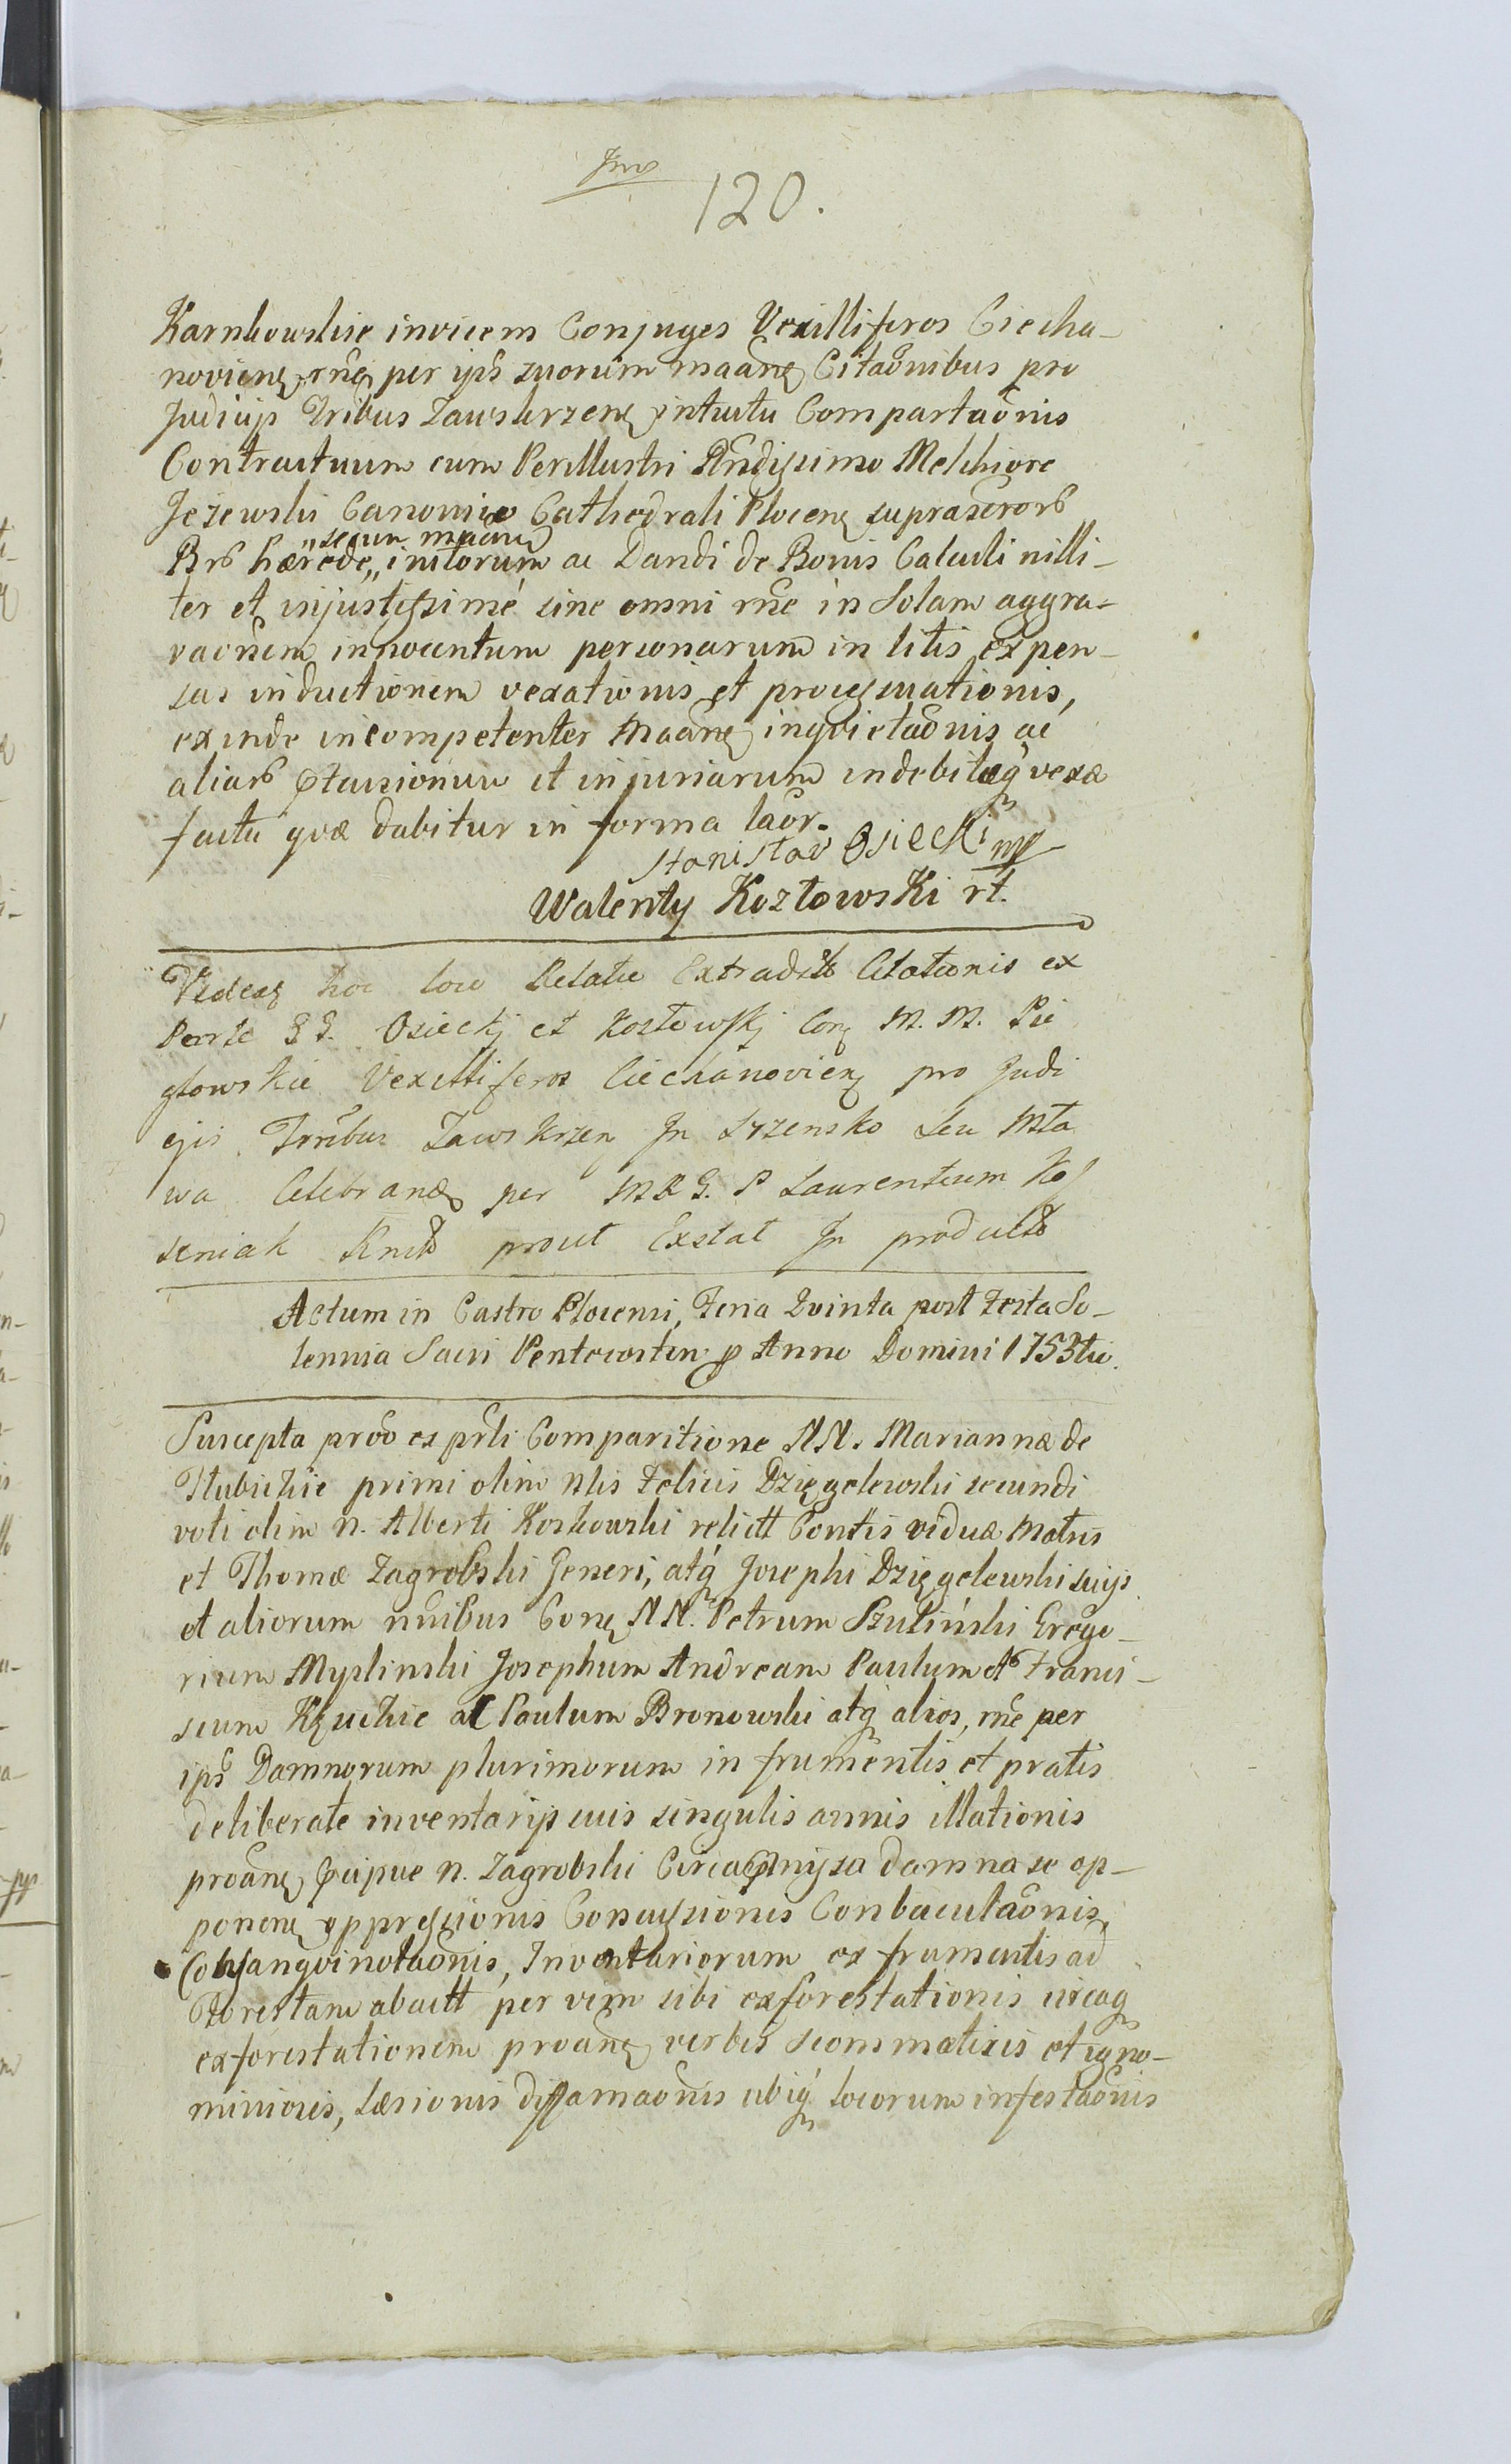 120.
Karnkowskie invicem Conjuges Vexilliferos Ciecha-
novien, rne, per ips suorum maane Citaonibus pro
Judicijs Tribus Zawskrzen intuitu Compartaonis
Contractuum cum Perillustri Rndissimo Melchiore
Jeżewski Canonico Cathedrali Plocen suprascror
Br hærede,, „secum maane initorum ac Dandi de Bonis Calculi nilli-
ter et injustissimé sine omni rne in Solam aggra-
vaonem innocentum personarum in litis expen-
sas inductionem vexationis et processuationis,
exinde incompetenter maane inqvietaonis ac
aliar ptaxionum et injuriarum indebitæq vexæ
facta qvæ dabitur in forma laor.
Stanisław Osiecki mp
Walenty Kozłowski rt.
Videas hoc loco Relatio Extradit Citationis ex
Parte GG. Osieckj et Kozłowskj Con M. M. Pie
głowskie Vexilliferos Ciechanovien pro Judi
cijs Tribus Zawskrzen In Szrensko seu Mła
wa Celebran per M R G. P Laurentium Kos
seniak prout Exstat In product
Actum in Castro Plocensi, Feria Qvinta post Festa So-
lennia Sacri Pentecosten p Anno Domini 1753tio.
Suscepta provo ex prti Comparitione NN. Mariannæ de
Hubickie primi olim Nlis Felicis Dzięgelewski secundi
voti olim N. Alberti Koskowski relictt Contis viduæ Matris
et Thomæ Zagrobski Generi, atq Josephi Dzięgelewski suijs
et aliorum nnibus Con NN. Petrum Szuliński Grego-
rium Myslinski Josephum Andream Paulum et Franci-
scum Kęuckie ac Paulum Bronowski atq alios, rne per
ips Damnorum plurimorum in frumentis et pratis
deliberate inventarijs suis singulis annis illationis
proane pcipue N. Zagrobski Circa pmissa damna se op-
ponen oppressionis Concussionis Conbaculaonis,
Consangvinotaonis, Inventariorum ex frumentis ad
Forestam abactt per vim sibi exforestationis circaq
exforestationem proane verbis scommaticis et igno-
miniosis, læsionis diffamaonis ubiq locorum infestaonis